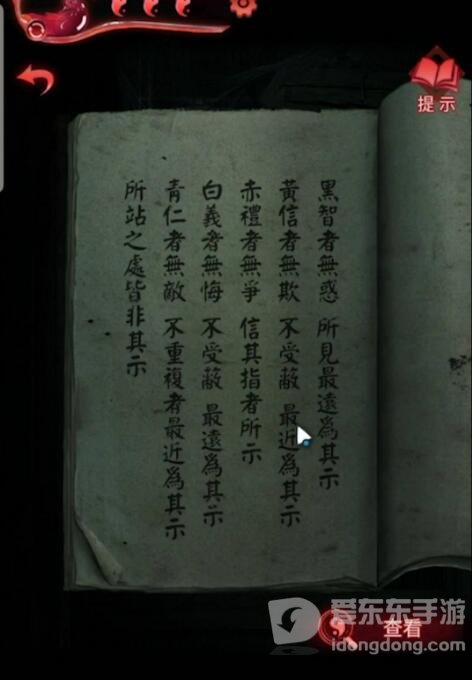 提示
黑智者無惑 所見最遠為其示
黃信者無欺 不受蔽 最近為其示
赤禮者無爭 信其指者所示
白義者無悔 不受蔽 最遠為其示
青仁者無敵 不重複者最近為其示
所站之處皆非其示
查看
爱东东手游
idongdong.com